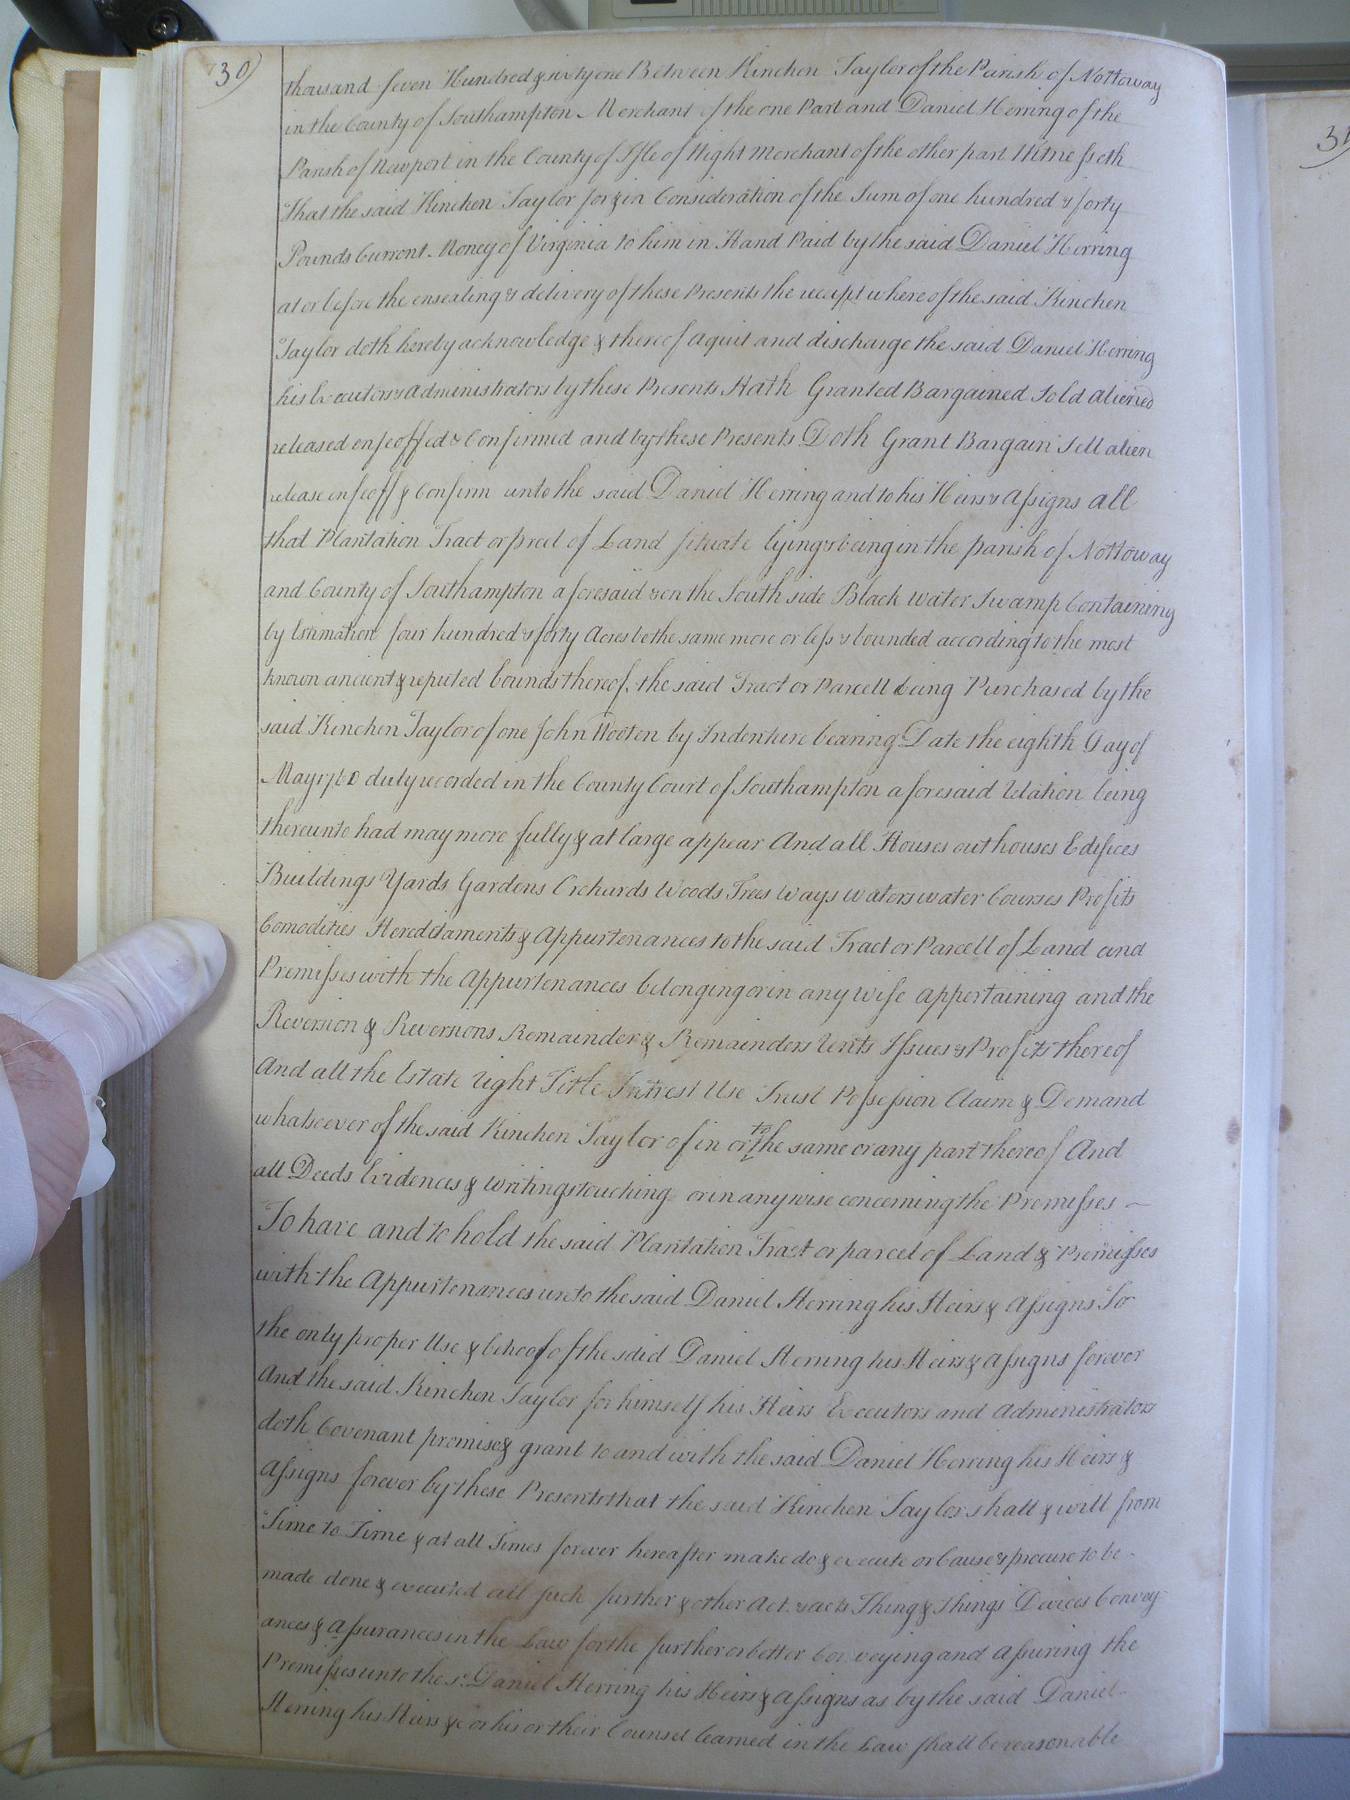 30)
thousand seven Hundred & sixty one Between Kinchen Taylor of the Parish of Nottoway
in the County of Southampton Merchant of the one Part and Daniel Herring of the
Parish of Newport in the County of Isle of Wight Merchant of the other part Witnesseth
That the said Kinchen Taylor for & in Consideration of the Sum of one hundred & forty
Pounds Current Money of Virginia to him in Hand Paid by the said Daniel Herring
at or before the ensealing & delivery of these Presents the receipt where of the said Kinchen
Taylor doth hereby acknowledge & thereof aquit and discharge the said Daniel Herring
his Executors & Administrators by these Presents Hath Granted Bargained Sold aliened
released enfeoffed & Confirmed and by these Presents Doth Grant Bargain Sell alien
release enfeoff & Confirm unto the said Daniel Herring and to his Heirs & Assigns all
that Plantation Tract or prcel of Land situate lying & being in the parish of Nottoway
and County of Southampton aforesaid & on the South side Black water Swamp Containing
by Estimation four hundred & forty Acres be the same more or less & bounded according to the most
known ancient & reputed bounds thereof, the said Tract or Parcell being Purchased by the
said Kinchen Taylor of one John Wooten by Indenture bearing Date the eighth Day of
May duly recorded in the County Court of Southampton aforesaid relation being
thereunto had may more fully & at large appear And all Houses outhouses Edifices
Buildings Yards Gardens Orchards Woods Trees Ways waters water Courses Profits
Comodities Hereditaments & Appurtenances to the said Tract or Parcell of Land and
Premisses with the Appurtenances belonging or in any wise appertaining and the
Reversion & Reversions Remainder & Remainders rents Issues & Profits thereof
And all the Estate right Title Intrest Use Trust Possession Claim & Demand
whatsoever of the said Kinchen Taylor of in or to the same or any part thereof And
all Deeds Evidences & writings touching or in any wise concerning the Premisses ~
To have and to hold the said Plantation Tract or parcel of Land & Premisses
with the Appurtenances unto the said Daniel Herring his Heirs & Assigns To
the only proper Use & behoof of the said Daniel Herring his Heirs & Assigns forever
And the said Kinchen Taylor for himself his Heirs Executors and Administrators
doth Covenant promise & grant to and with the said Daniel Herring his Heirs &
Assigns forever by these Presents that the said Kinchen Taylor shall & will from
Time to Time & at all Times forever hereafter make do & execute or Cause & procure to be
made done & executed all such further & other Act & acts Thing & things Devices Convey
ances & Assurances in the Law for the further or better Conveying and Assuring the
Premisses unto the sd. Daniel Herring his Heirs & Assigns as by the said Daniel
Herring his Heirs &c or his or their Counsel learned in the Law shall be reasonable